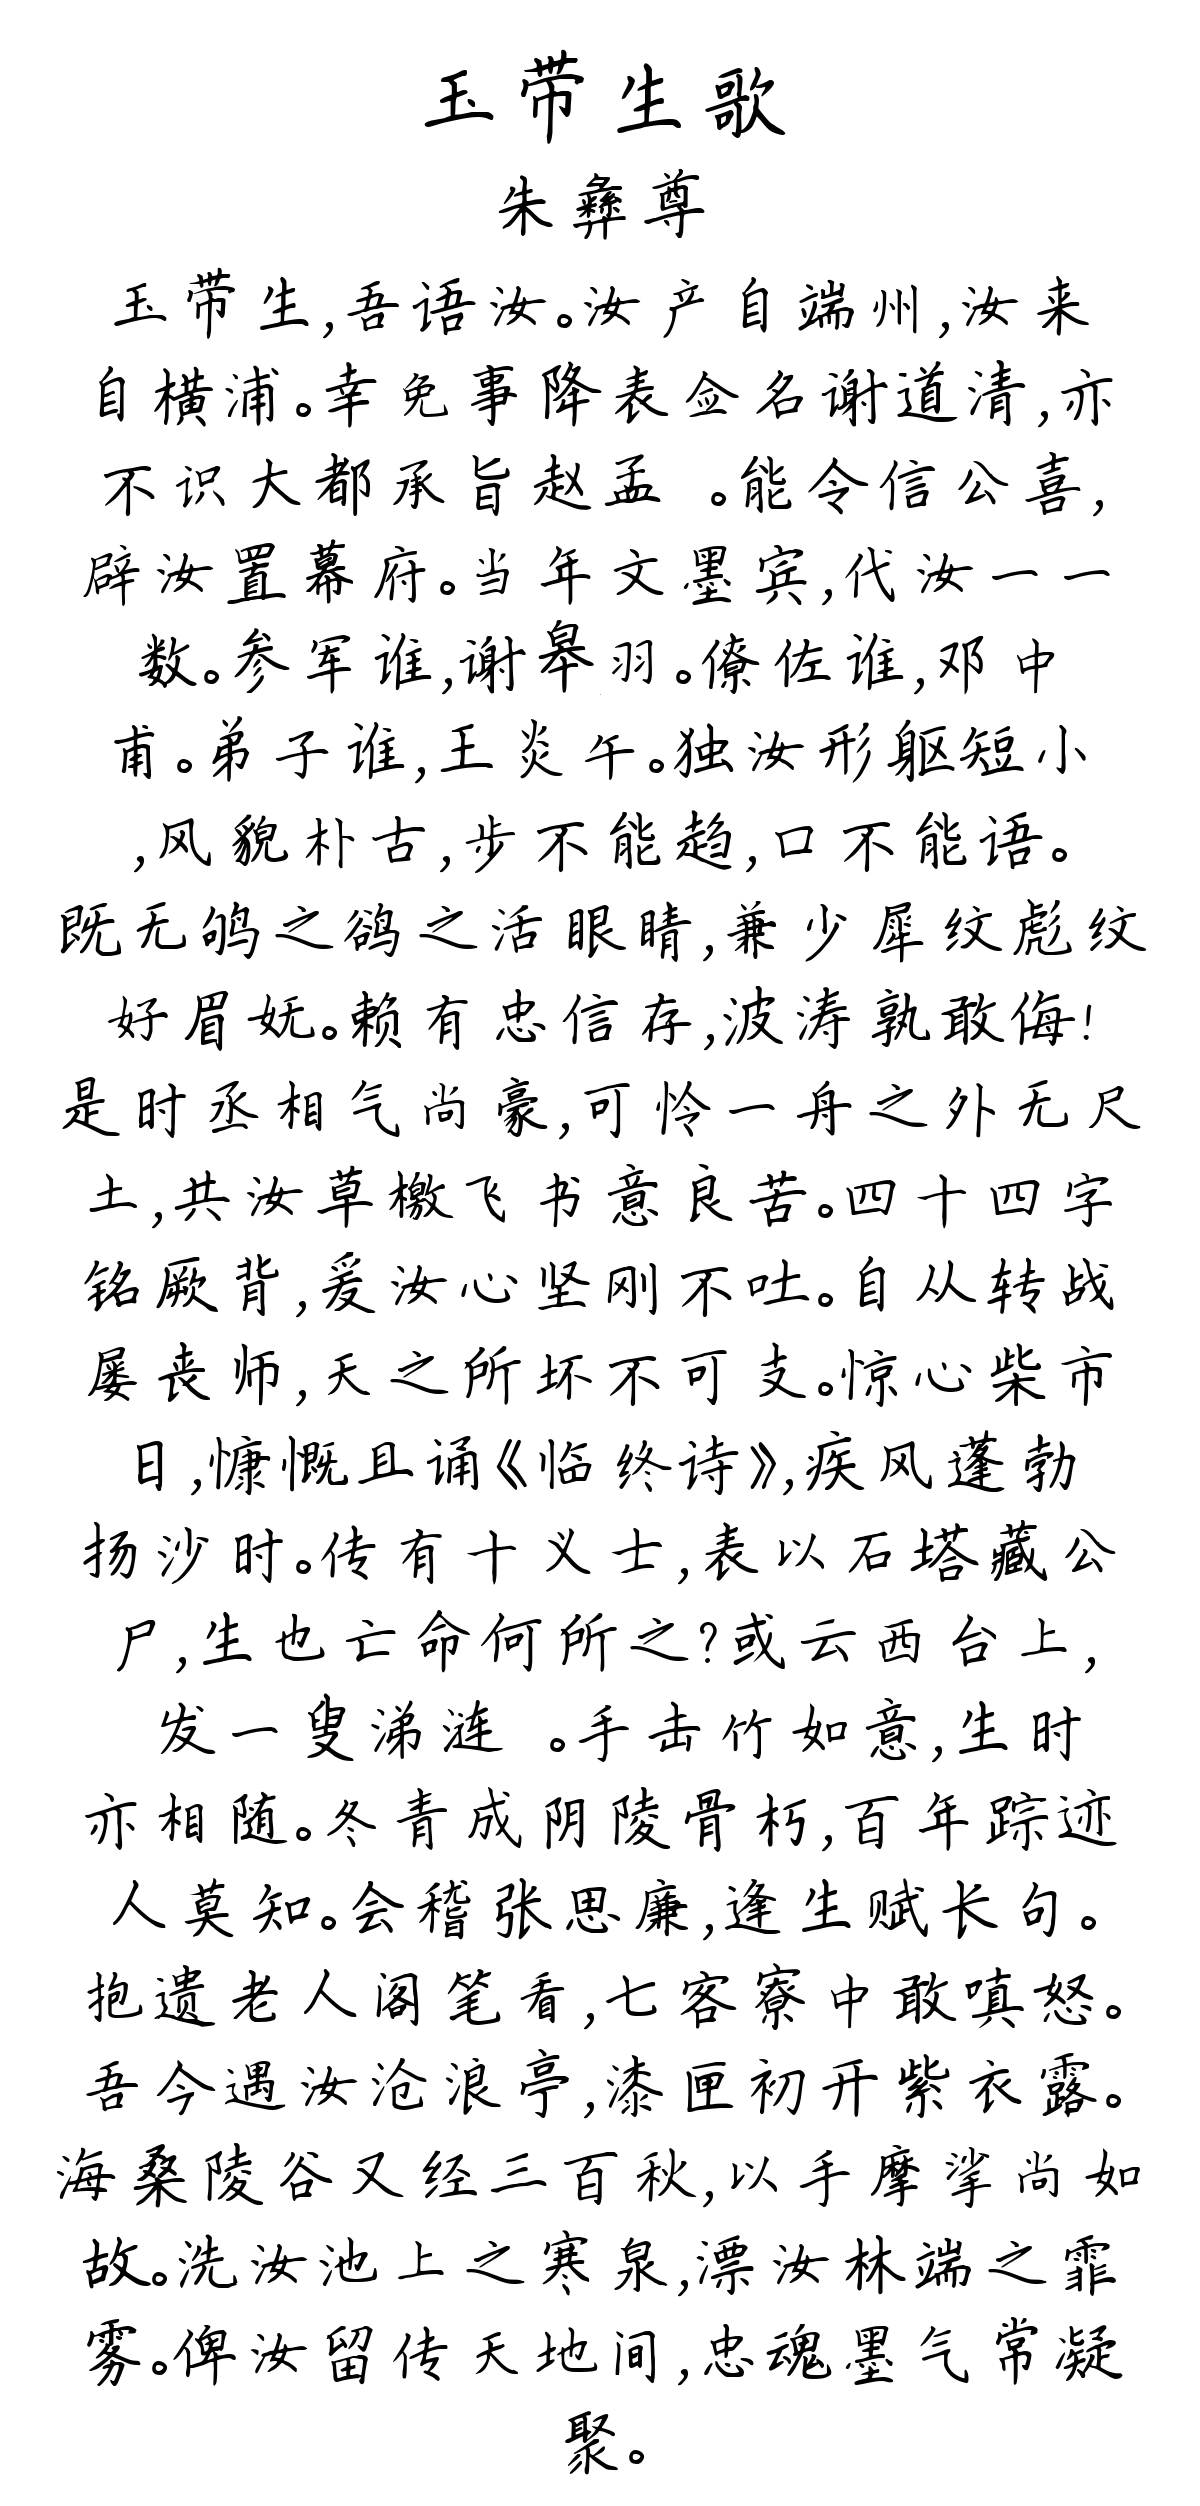 玉带生歌
朱彝尊
玉带生,吾语汝。汝产自端州,汝来
自横浦。幸免事降表佥名谢道清,亦
不识大都承旨赵孟 。能令信公喜,
辟汝置幕府。当年文墨宾,代汝一一
数。参军谁,谢皋羽。僚佐谁,邓中
甫。弟子谁,王炎午。独汝形躯短小
,风貌朴古,步不能趋,口不能语。
既无鸲之鹆之活眼睛,兼少犀纹彪纹
好眉妩。赖有忠信存,波涛孰敢侮!
是时丞相气尚豪,可怜一舟之外无尺
土,共汝草檄飞书意良苦。四十四字
铭厥背,爰汝心坚刚不吐。自从转战
屡丧师,天之所坏不可支。惊心柴市
日,慷慨且诵《临终诗》,疾风蓬勃
扬沙时。传有十义士,表以石塔藏公
尸,生也亡命何所之?或云西台上,
发一叟涕涟 。手击竹如意,生时
亦相随。冬青成阴陵骨朽,百年踪迹
人莫知。会稽张思廉,逢生赋长句。
抱遗老人阁笔看,七客寮中敢嗔怒。
吾今遇汝沧浪亭,漆匣初开紫衣露。
海桑陵谷又经三百秋,以手摩挲尚如
故。洗汝池上之寒泉,漂汝林端之霏
雾。俾汝留传天地间,忠魂墨气常凝
聚。